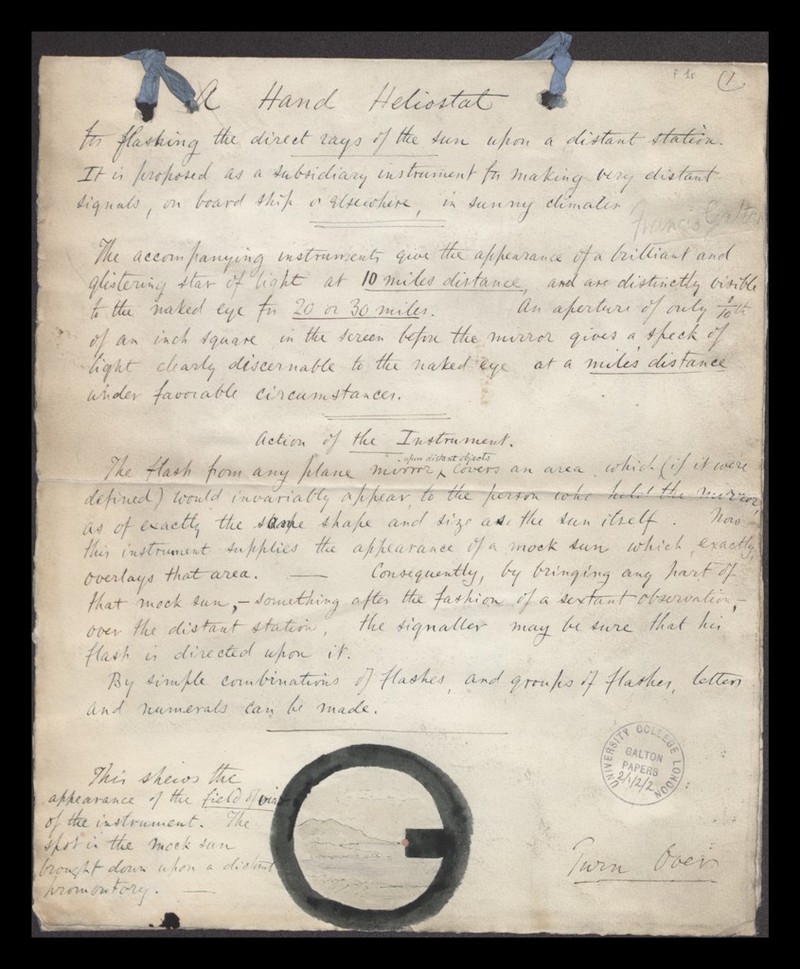 F 1r
(1)
A Hand Heliostat
for flashing the direct rays of the sun upon a distant station.
It is proposed as a subsidiary instrument for making very distant
signals, on board ship or elsewhere, in sunny climates
Francis Galton
The accompanying instruments give the appearance of a brilliant and
glistering star of light at 10 miles distance, and are distinctly visible
to the naked eye for 20 or 30 miles. An aperture of only 1/10th
of an inch square in the screen before the mirror gives a speck of
light clearly discernable to the naked eye at a miles distance
under favorable circumstances.
Action of the Instrument.
upon distant objects
The flash from any plane mirror covers an area which (if it were
defined) would invariably appear, to the person who held the mirror,
as of exactly the same shape and size as the sun itself. Now
this instrument supplies the appearance of a mock sun which exactly
overlays that area. — Consequently, by bringing any part of
that mock sun, – something after the fashion of a sextant observation, –
over the distant station, the signaller may be sure that his
flash is directed upon it.
By simple combinations of flashes, and groups of flashes, letters
and numerals can be made.
This shews the
appearance of the field of view
of the instrument. The
spot is the mock sun
brought down upon a distant
promontory. —
UNIVERSITY COLLEGE LONDON
GALTON
PAPERS
2/1/2/2
Turn Over